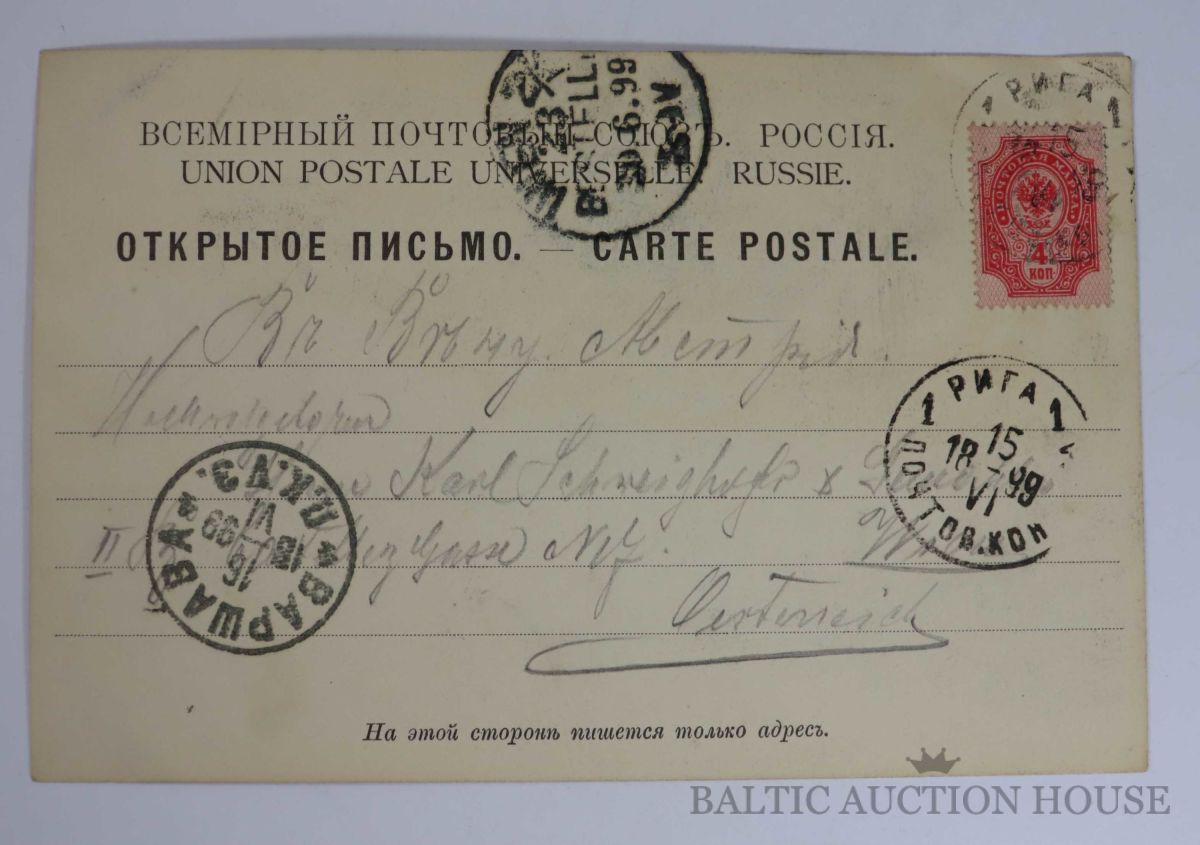 ВСЕМІРНЫЙ ПОЧТОВЫЙ СОЮЗЪ. РОССІЯ.
UNION POSTALE UNIVERSELLE. RUSSIE.
ОТКРЫТОЕ ПИСЬМО. — CARTE POSTALE.
WIEN 2/2
BESTELLT
6.99
РИГА
1 1
ПОЧТОВАЯ МАРКА
4
КОП
Въ Вѣну. Австрія.
Karl Schweighofer &
II Gasse No 7.
Oesterreich
1 РИГА 1
15
18 99
VI
ПОЧТОВ. КОН
ВАРШАВА П.К.V Э.
16
18 99
VI
На этой сторонѣ пишется только адресъ.
BALTIC AUCTION HOUSE